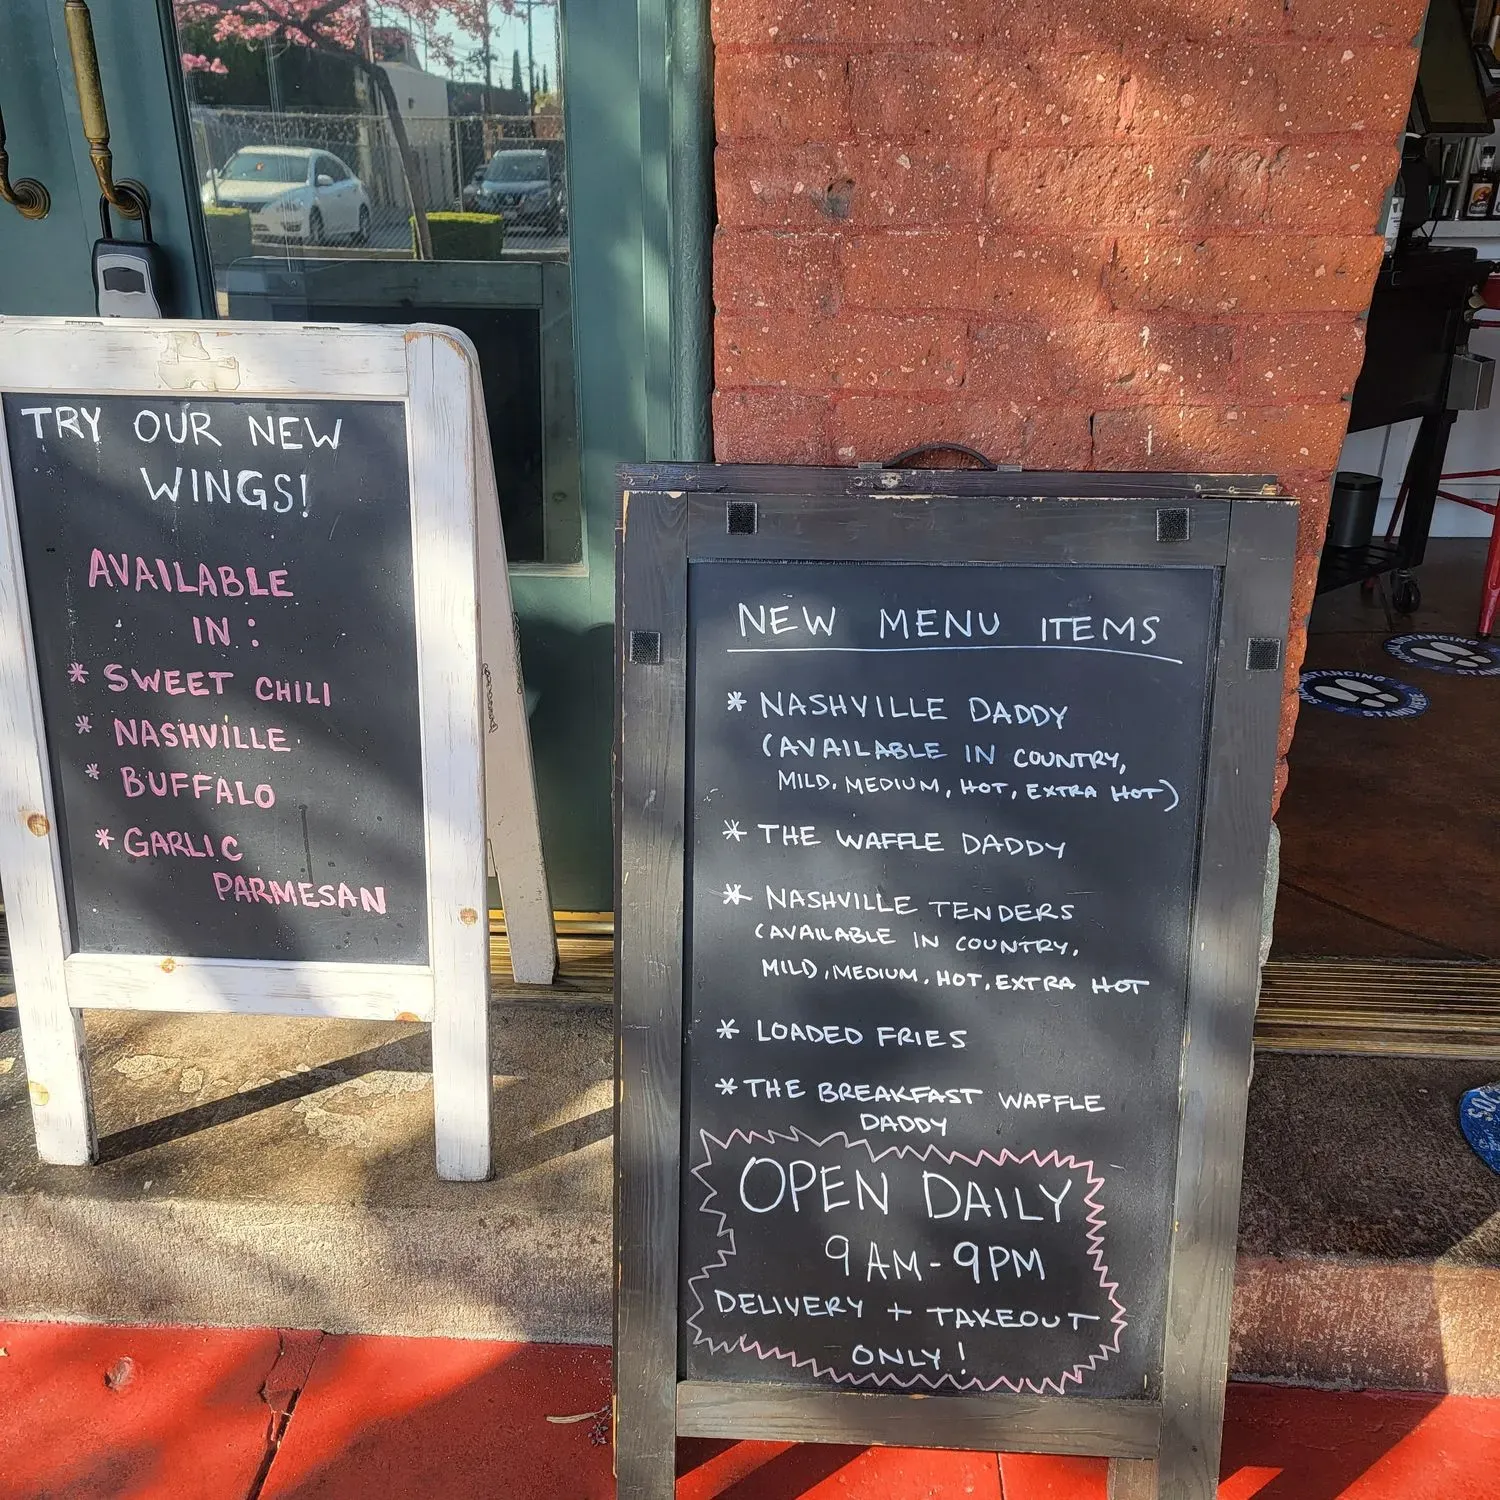 TRY OUR NEW
WINGS!
AVAILABLE
IN:
* SWEET CHILI
* NASHVILLE
* BUFFALO
* GARLIC
PARMESAN
NEW MENU ITEMS
* NASHVILLE DADDY
(AVAILABLE IN COUNTRY,
MILD, MEDIUM, HOT, EXTRA HOT)
* THE WAFFLE DADDY
* NASHVILLE TENDERS
(AVAILABLE IN COUNTRY,
MILD, MEDIUM, HOT, EXTRA HOT
* LOADED FRIES
* THE BREAKFAST WAFFLE
DADDY
OPEN DAILY
9AM-9PM
DELIVERY + TAKEOUT
ONLY!